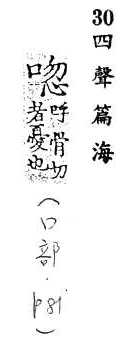 30四聲篇海
唿呼骨切者憂也（口部·p81）